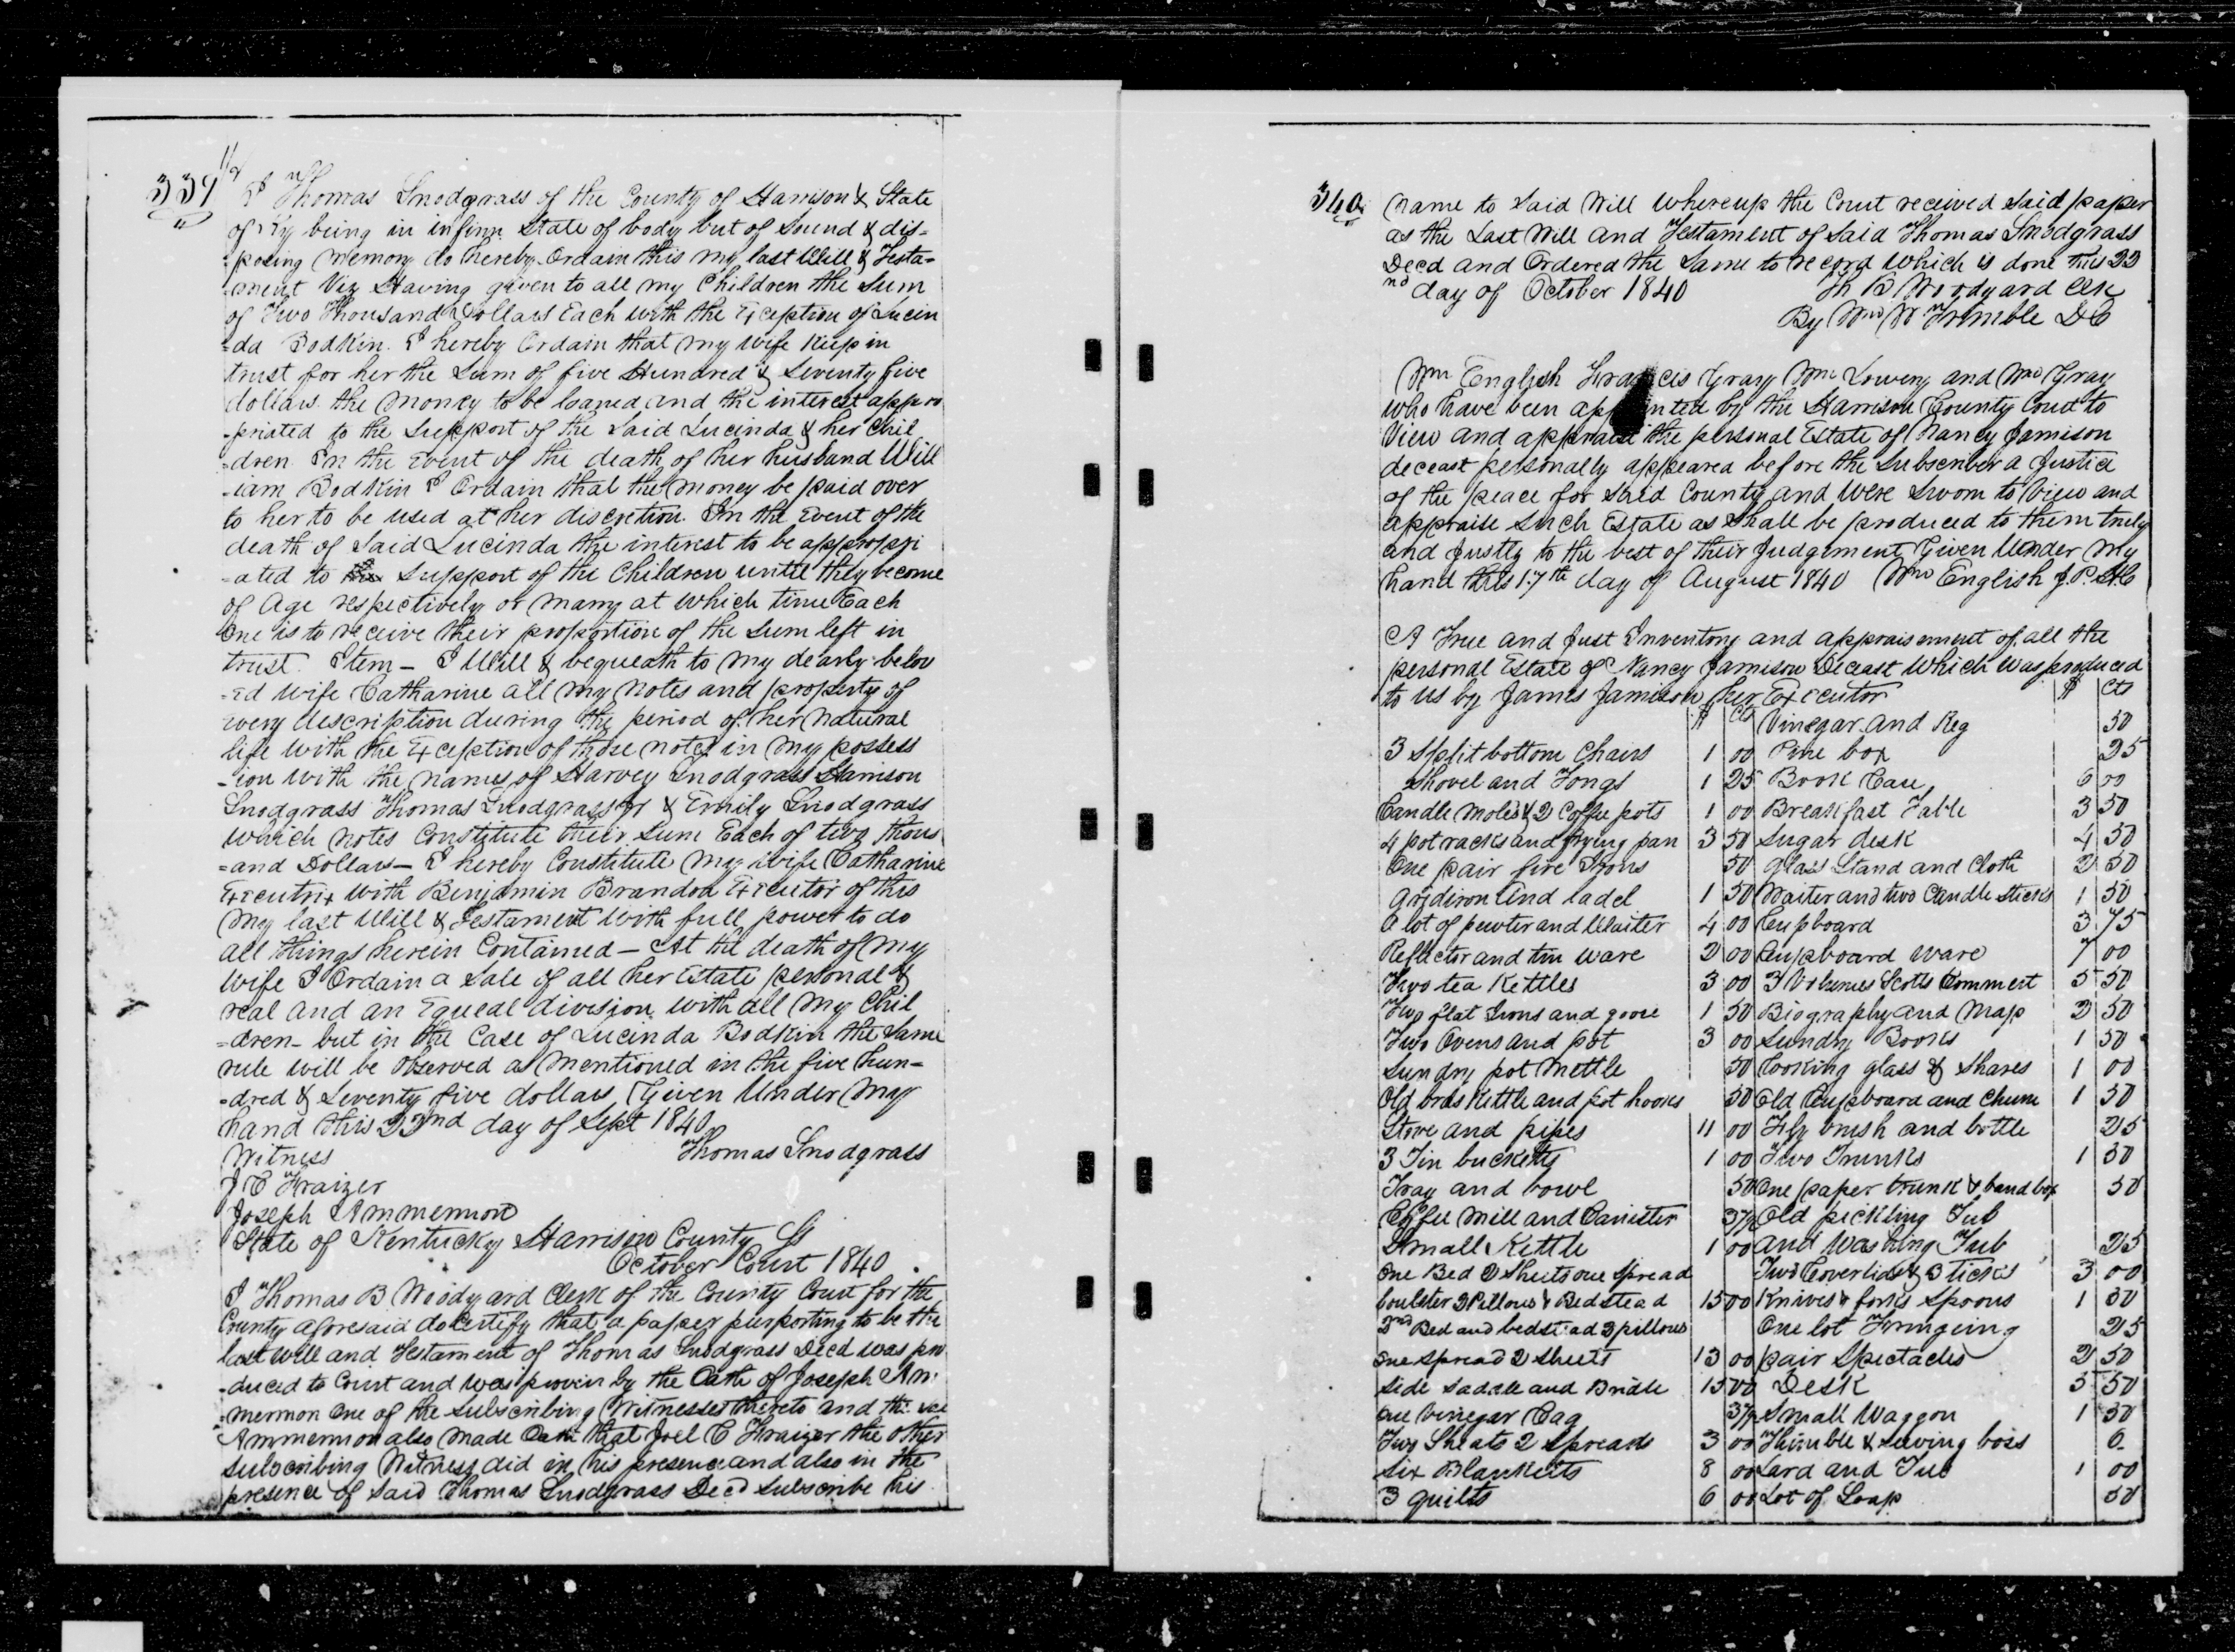 339 1/2
I Thomas Snodgrass of the County of Harrison & State
of Ky being in infirm State of body but of Sound & dis-
-posing memory do hereby Ordain this my last Will & Testa-
-ment Viz Having given to all my Children the Sum
of Two Thousand Dollars Each with the Exception of Lucin
-da Bodkin. I hereby Ordain that my wife Keep in
trust for her the Sum of five Hundred & Seventy five
dollars the money to be loaned and the interest appro
-priated to the Support of the Said Lucinda & her Chil
-dren In the Event of the death of her husband Will
-iam Bodkin I Ordain that the money be paid over
to her to be used at her discretion. In the Event of the
death of Said Lucinda the interest to be appropri
-ated to the Support of the Children until they become
of Age respectively or marry at which time Each
One is to receive their proportion of the Sum left in
trust. Item - I Will & bequeath to my dearly belov
-ed wife Catharine all my notes and property of
every description during the period of her natural
life with the Exception of those notes in my possess
-ion with the names of Harvey Snodgrass Harrison
Snodgrass Thomas Snodgrass Jr & Emily Snodgrass
which notes Constitute their Sum Each of two thous
=and Dollars - I hereby Constitute my wife Catharine
Executrix with Benjamin Brandon Executor of this
my last Will & Testament with full power to do
all things herein Contained - At the death of my
wife I Ordain a Sale of all her Estate personal &
real and an Equeal division with all my Chil
-dren - but in the Case of Lucinda Bodkin the Same
rule will be Observed as mentioned in the five hun-
-dred & Seventy five dollars Given Under my
hand this 22nd day of Sept 1840
Witness Thomas Snodgrass
J C Fraizer
Joseph Ammermon
State of Kentucky Harrison County Ss
October Court 1840
I Thomas B Woodyard Clerk of the County Court for the
County aforesaid do Certify that a paper purporting to be the
last will and Testament of Thomas Snodgrass Decd was pro
-duced to Court and was proven by the Oath of Joseph Am-
-mermon One of the Subscribing Witnesses thereto and the
Ammermon also made Oath that Joel C Fraizer the other
Subscribing Witness did in his presence and also in the
presence of Said Thomas Snodgrass Decd Subscribe his
340
name to Said Will whereup the Court received Said paper
as the Last Will and Testament of Said Thomas Snodgrass
Decd and Ordered the Same to record which is done this 22
nd day of October 1840 Th B Woodyard Clk
By Wm W Trimble DC
Wm English Francis Gray Wm Lowery and Wm Gray
who have been appointed by the Harrison County Court to
View and appraise the personal Estate of Nancy Jamison
deceast personally appeared before the Subscriber a Justice
of the peace for Said County and were Sworn to View and
appraise Such Estate as Shall be produced to them truly
and Justly to the best of their Judgement Given Under my
hand this 17th day of August 1840 Wm English J.P.H.C
A True and Just Inventory and appraisement of all the
personal Estate of Nancy Jamison Deceast which was produced
to us by James Jamison her Executor $ Cts
$ Cts Vinegar and Keg 50
3 Split bottom Chairs 1 00 Pine box 25
Shovel and Tongs 1 25 Book Case 6 00
Candle Moles & 2 Coffee pots 1 00 Breakfast Table 3 50
4 pot racks and frying pan 3 50 Sugar desk 4 50
One pair fire Irons 50 Glass Stand and Cloth 2 50
Gridiron And ladel 1 50 Waiter and two Candle Sticks 1 50
A lot of pewter and Waiter 4 00 Cupboard 3 75
Reflector and tin ware 2 00 Cupboard ware 7 00
Two tea Kettles 3 00 3 Volumes Scotts Comment 5 50
Two flat Irons and goose 1 50 Biography and Map 2 50
Two Ovens and pot 3 00 Sundry Books 1 50
Sundry pot mettle 50 Looking glass & Shares 1 00
Old bras Kittle and pot hooks 50 Old Cupboard and Churn 1 50
Stove and pipes 11 00 Fly brush and bottle 25
3 Tin bucketts 1 00 Two Trunks 1 50
Tray and bowl 50 One paper trunk & band box 50
Coffee Mill and Canister 37½ Old pickling Tub
Small Kettle 1 00 and Washing Tub 25
One Bed 2 Sheets one Spread Two Coverlids & 3 ticks 3 00
boulster 2 Pillows & Bedstead 15 00 Knives & forks Spoons 1 50
2nd Bed and bedstead 2 pillows One lot Fringeing 25
One Spread 2 Sheets 13 00 pair Spectacles 2 50
Side Saddle and Bridle 15 00 Desk 5 50
One Vinegar Cag 37½ Small Waggon 1 50
Two Sheats 2 Spreads 3 00 Thimble & Sewing boss 6
Six Blanketts 8 00 Lard and Tub 1 00
3 quilts 6 00 Lot of Soap 50